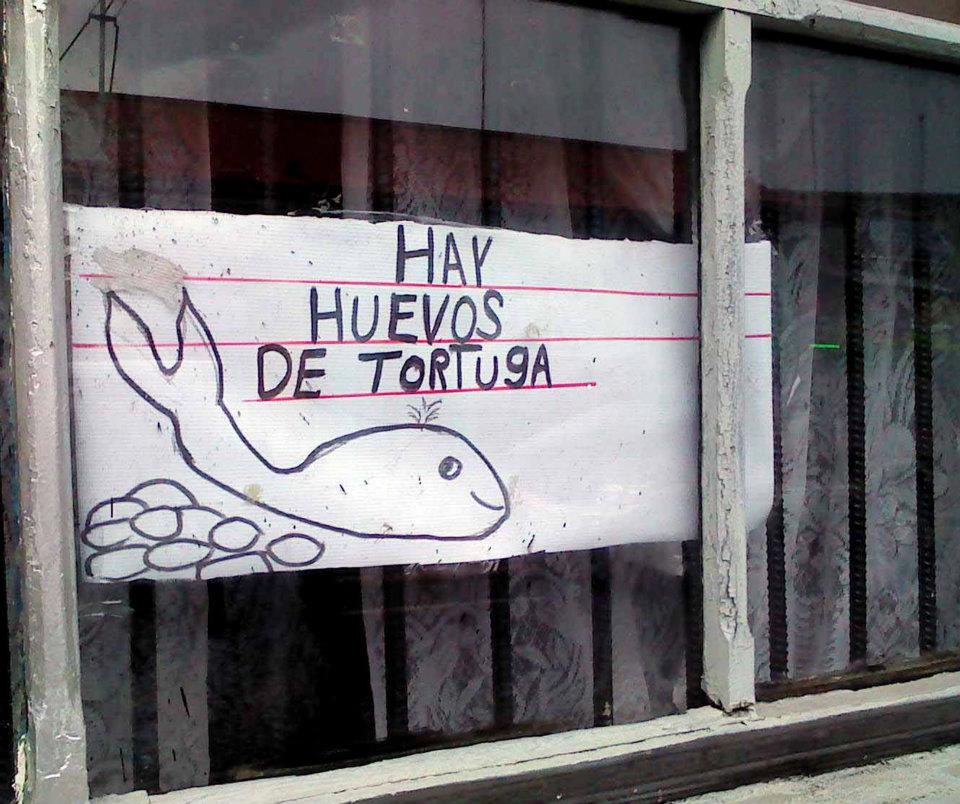 HAY
HUEVOS
DE TORTUgA